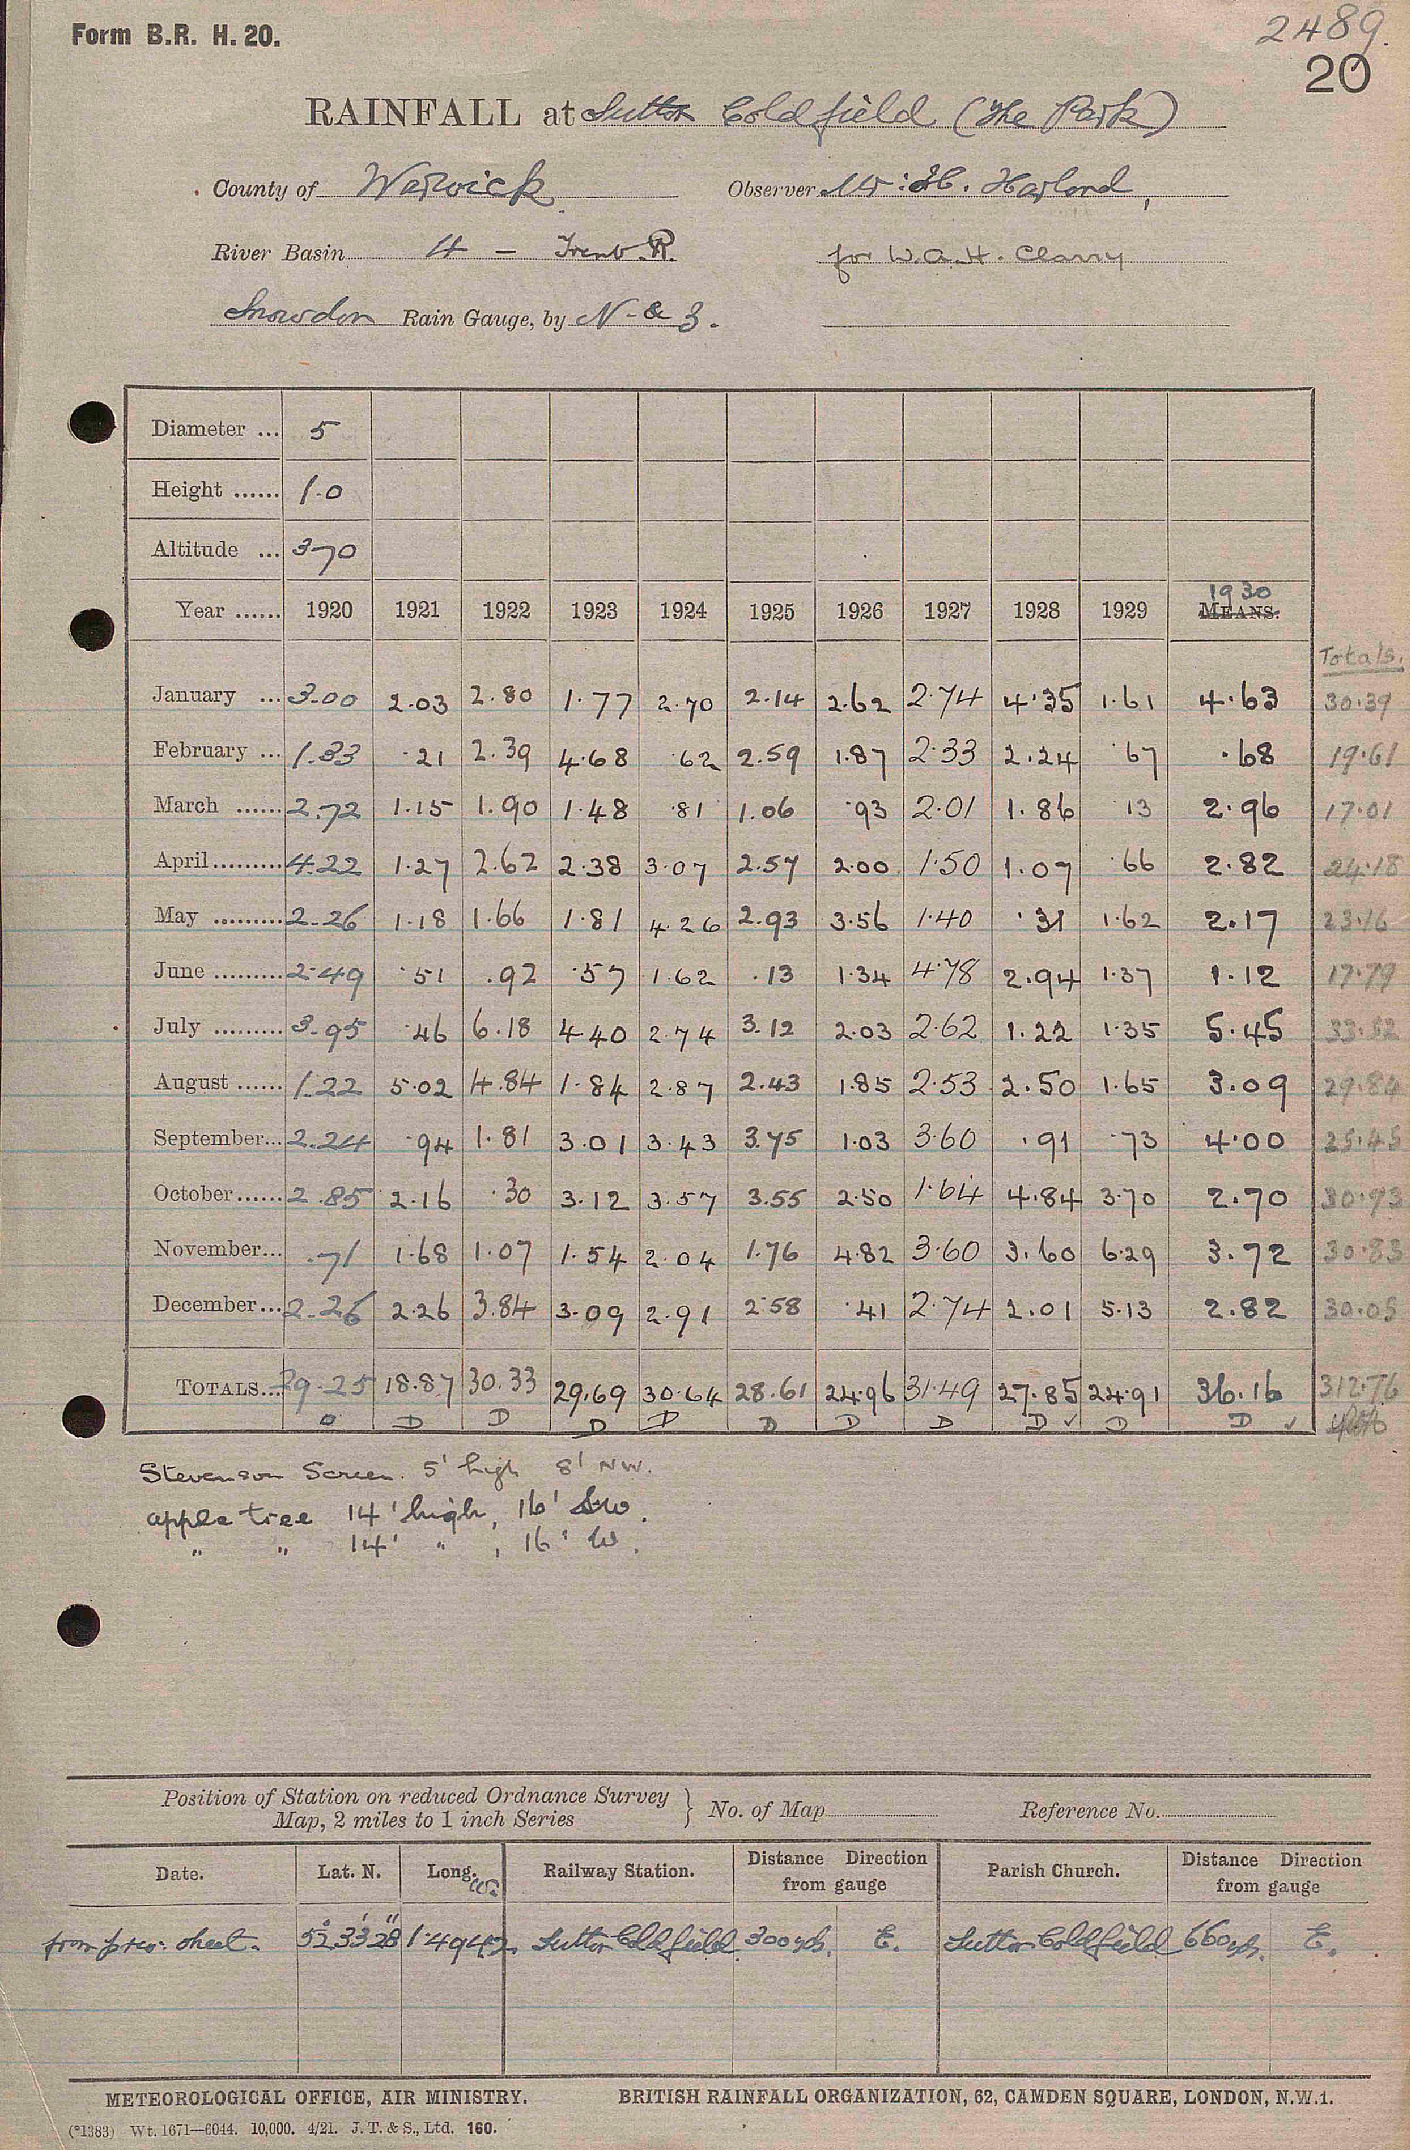 Form B.R. H. 20.
2489.
20
RAINFALL at Sutton Coldfield (The Park)
County of Warwick Observer Mr: H. Harland,
River Basin 4 - Trent R. for W.A.H. Clarry
Snowdon Rain Gauge, by N. & Z.
Diameter ... 5
Height ...... 1.0
Altitude ... 370
Year ...... 1920 1921 1922 1923 1924 1925 1926 1927 1928 1929 1930 MEANS.
Totals.
January ... 3.00 2.03 2.80 1.77 2.70 2.14 2.62 2.74 4.35 1.61 4.63 30.39
February ... 1.33 .21 2.39 4.68 .62 2.59 1.87 2.33 2.24 .67 .68 19.61
March ...... 2.72 1.15 1.90 1.48 .81 1.06 .93 2.01 1.86 .13 2.96 17.01
April ......... 4.22 1.27 2.62 2.38 3.07 2.57 2.00 1.50 1.07 .66 2.82 24.18
May ......... 2.26 1.18 1.66 1.81 4.26 2.93 3.56 1.40 .31 1.62 2.17 23.16
June ......... 2.49 .51 .92 .57 1.62 .13 1.34 4.78 2.94 1.37 1.12 17.79
July ......... 3.95 .46 6.18 4.40 2.74 3.12 2.03 2.62 1.22 1.35 5.45 33.52
August ...... 1.22 5.02 4.84 1.84 2.87 2.43 1.85 2.53 2.50 1.65 3.09 29.84
September... 2.24 .94 1.81 3.01 3.43 3.75 1.03 3.60 .91 .73 4.00 25.45
October ...... 2.85 2.16 .30 3.12 3.57 3.55 2.50 1.64 4.84 3.70 2.70 30.93
November... .71 1.68 1.07 1.54 2.04 1.76 4.82 3.60 3.60 6.29 3.72 30.83
December ... 2.26 2.26 3.84 3.09 2.91 2.58 .41 2.74 2.01 5.13 2.82 30.05
TOTALS... 29.25 18.87 30.33 29.69 30.64 28.61 24.96 31.49 27.85 24.91 36.16 312.76
D D D D D D D D D ✓ D D ✓
Stevenson Screen. 5' high 8' NW.
apple tree 14' high, 16' SW.
" " 14' " , 16' W.
Position of Station on reduced Ordnance Survey
Map, 2 miles to 1 inch Series } No. of Map Reference No.
Date. Lat. N. Long. W. Railway Station. Distance Direction from gauge Parish Church. Distance Direction from gauge
from prev: sheet. 52° 33' 28" 1.49 42. Sutton Coldfield 300 yds. E. Sutton Coldfield 660 yds. E.
METEOROLOGICAL OFFICE, AIR MINISTRY. BRITISH RAINFALL ORGANIZATION, 62, CAMDEN SQUARE, LONDON, N.W.1.
(*1383) Wt. 1671—6044. 10,000. 4/21. J. T. & S., Ltd. 160.